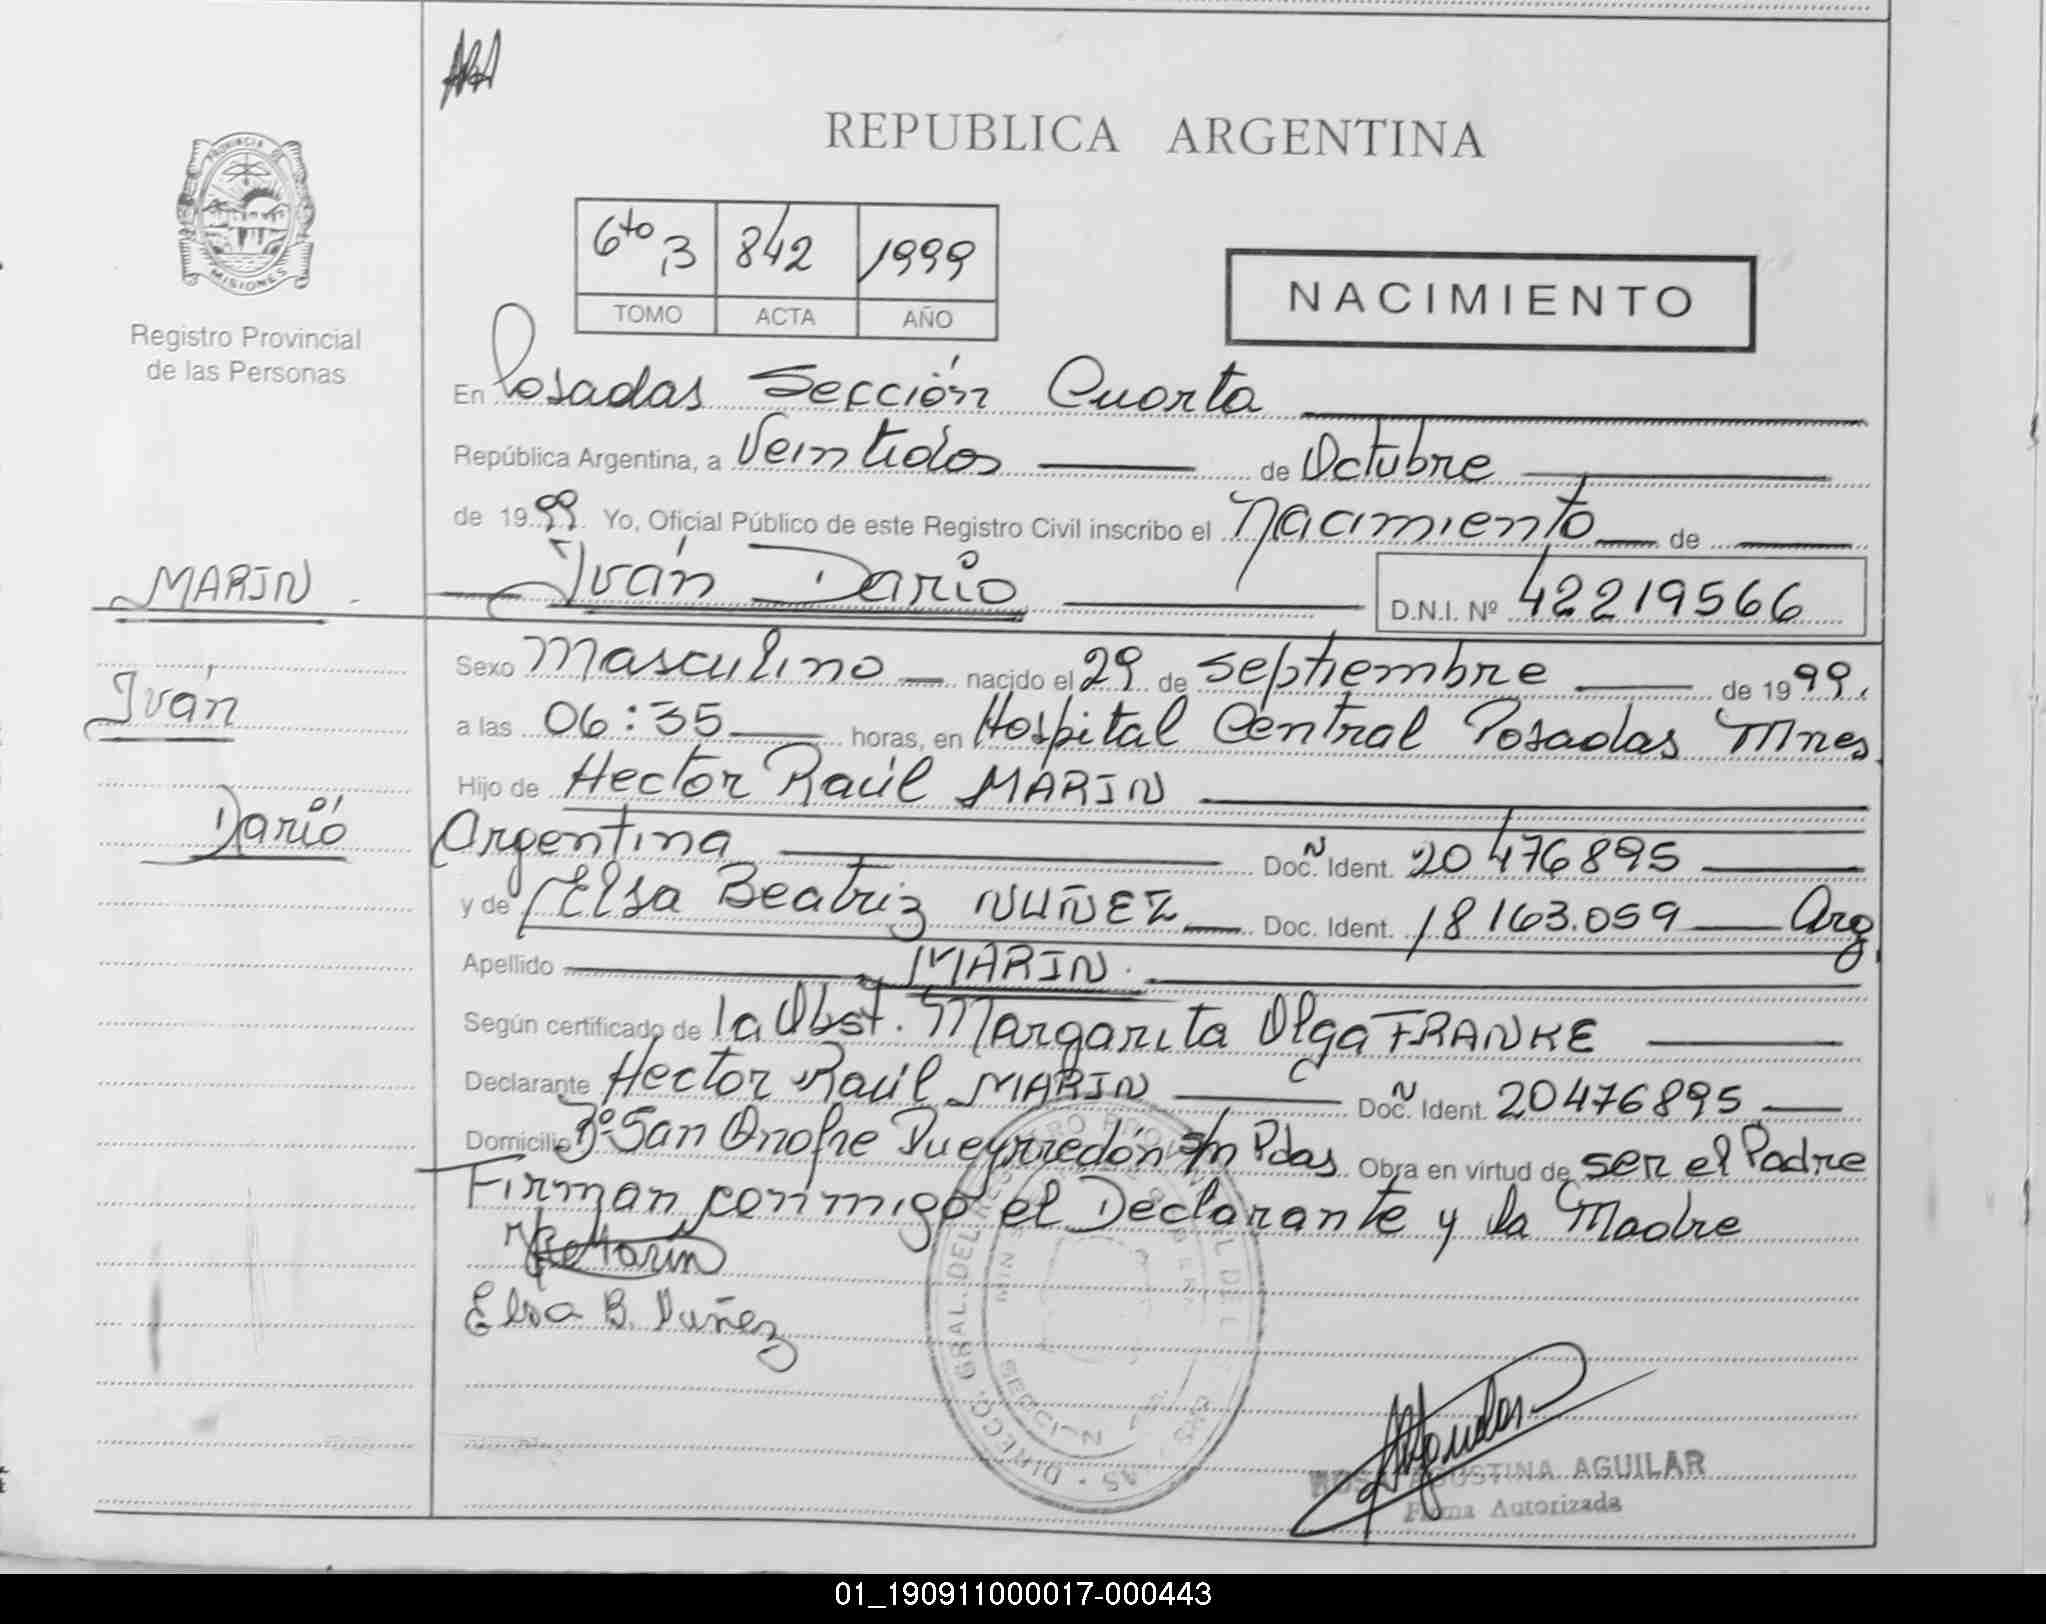 REPUBLICA ARGENTINA
PROVINCIA DE
MISIONES
Registro Provincial
de las Personas
6to B 842 1999
TOMO ACTA AÑO
NACIMIENTO
En Posadas Sección Cuarta
República Argentina, a Veintidos de Octubre
de 1999 Yo, Oficial Público de este Registro Civil inscribo el Nacimiento de
Iván Dario D.N.I. Nº 42219566
MARIN
Iván
Dario
Sexo Masculino nacido el 29 de Septiembre de 1999.
a las 06:35 horas, en Hospital Central Posadas Mnes.
Hijo de Hector Raúl MARIN
Argentina Doc. Ident. 20476895
y de Elsa Beatriz NUÑEZ Doc. Ident. 18163.059 Arg.
Apellido MARIN.
Según certificado de la Obst. Margarita Olga FRANKE
Declarante Hector Raúl MARIN Doc. Ident. 20476895
Domicilio Bº San Onofre Pueyrredón s/n Pdas Obra en virtud de ser el Padre
Firman conmigo el Declarante y la Madre
Marin
Elsa B. Nuñez
DIRECC. GRAL. DEL REGISTRO
AGUSTINA AGUILAR
Firma Autorizada
01_190911000017-000443